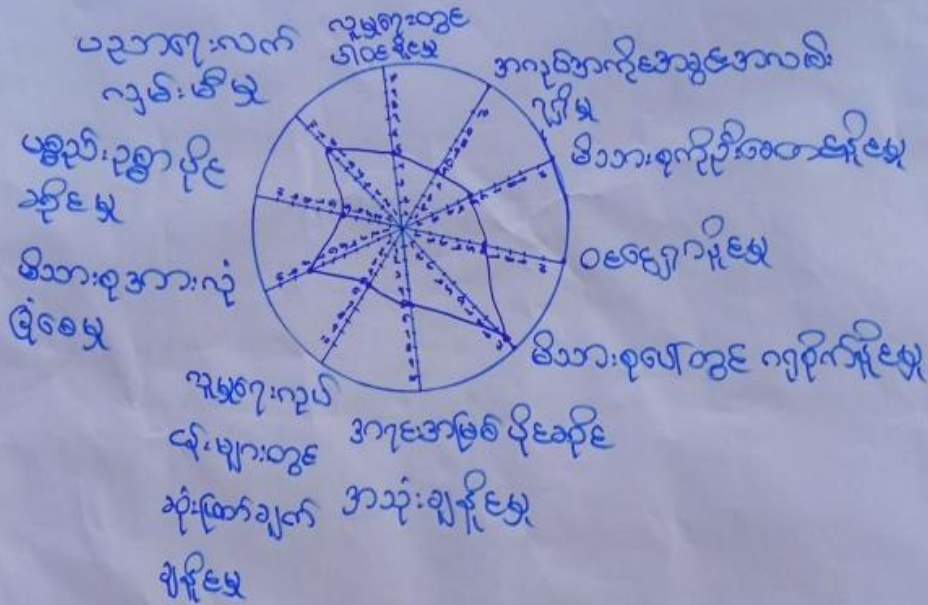 လူမှုရေးတွင်
ပါဝင်နိုင်မှု
အလုပ်အကိုင်အခွင့်အလမ်း
ရရှိမှု
မိသားစုကိုဦးဆောင်နိုင်မှု
ဝင်ငွေရှာနိုင်မှု
မိသားစုပေါ်တွင် ဂရုစိုက်နိုင်မှု
အရင်းအမြစ် ပိုင်ဆိုင်
အသုံးချနိုင်မှု
လူမှုရေးလုပ်
ငန်းများတွင်
ဆုံးဖြတ်ချက်
ချနိုင်မှု
မိသားစုအားလုံ
ခြုံစေမှု
ပစ္စည်းဥစ္စာ ပိုင်
ဆိုင်မှု
ပညာရေးလက်
လှမ်းမီမှု